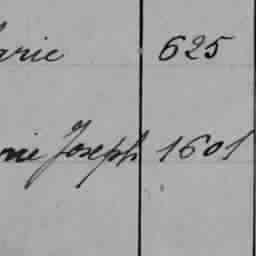 arie 625
rie Joseph 1601